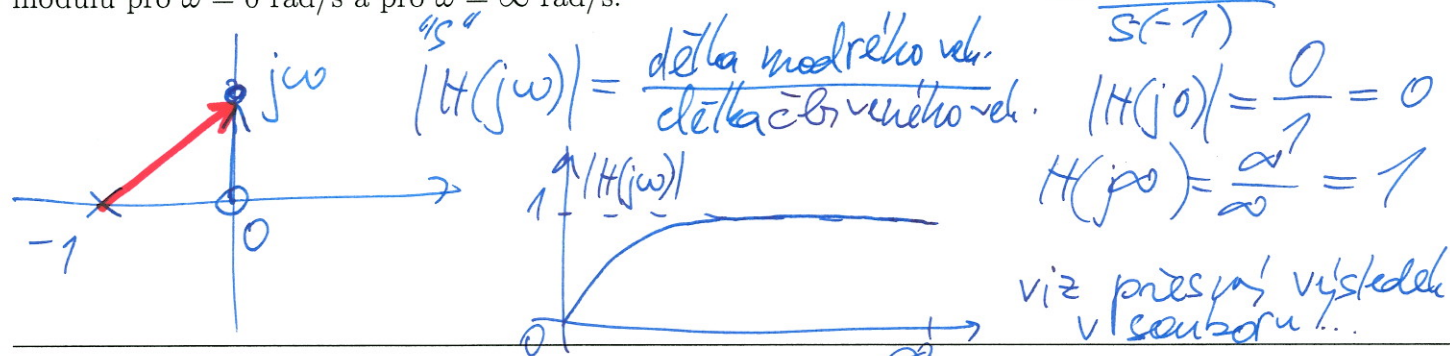 modulu pro ω = 0 rad/s a pro ω = ∞ rad/s.
"s"
jω
|H(jω)| = délka modrého vek. / délka červeného vek.
s(-1)
|H(j0)| = 0/1 = 0
H(j∞) = ∞/∞ = 1
-1
0
|H(jω)|
1
0
∞
viz přesný výsledek
v souboru!...